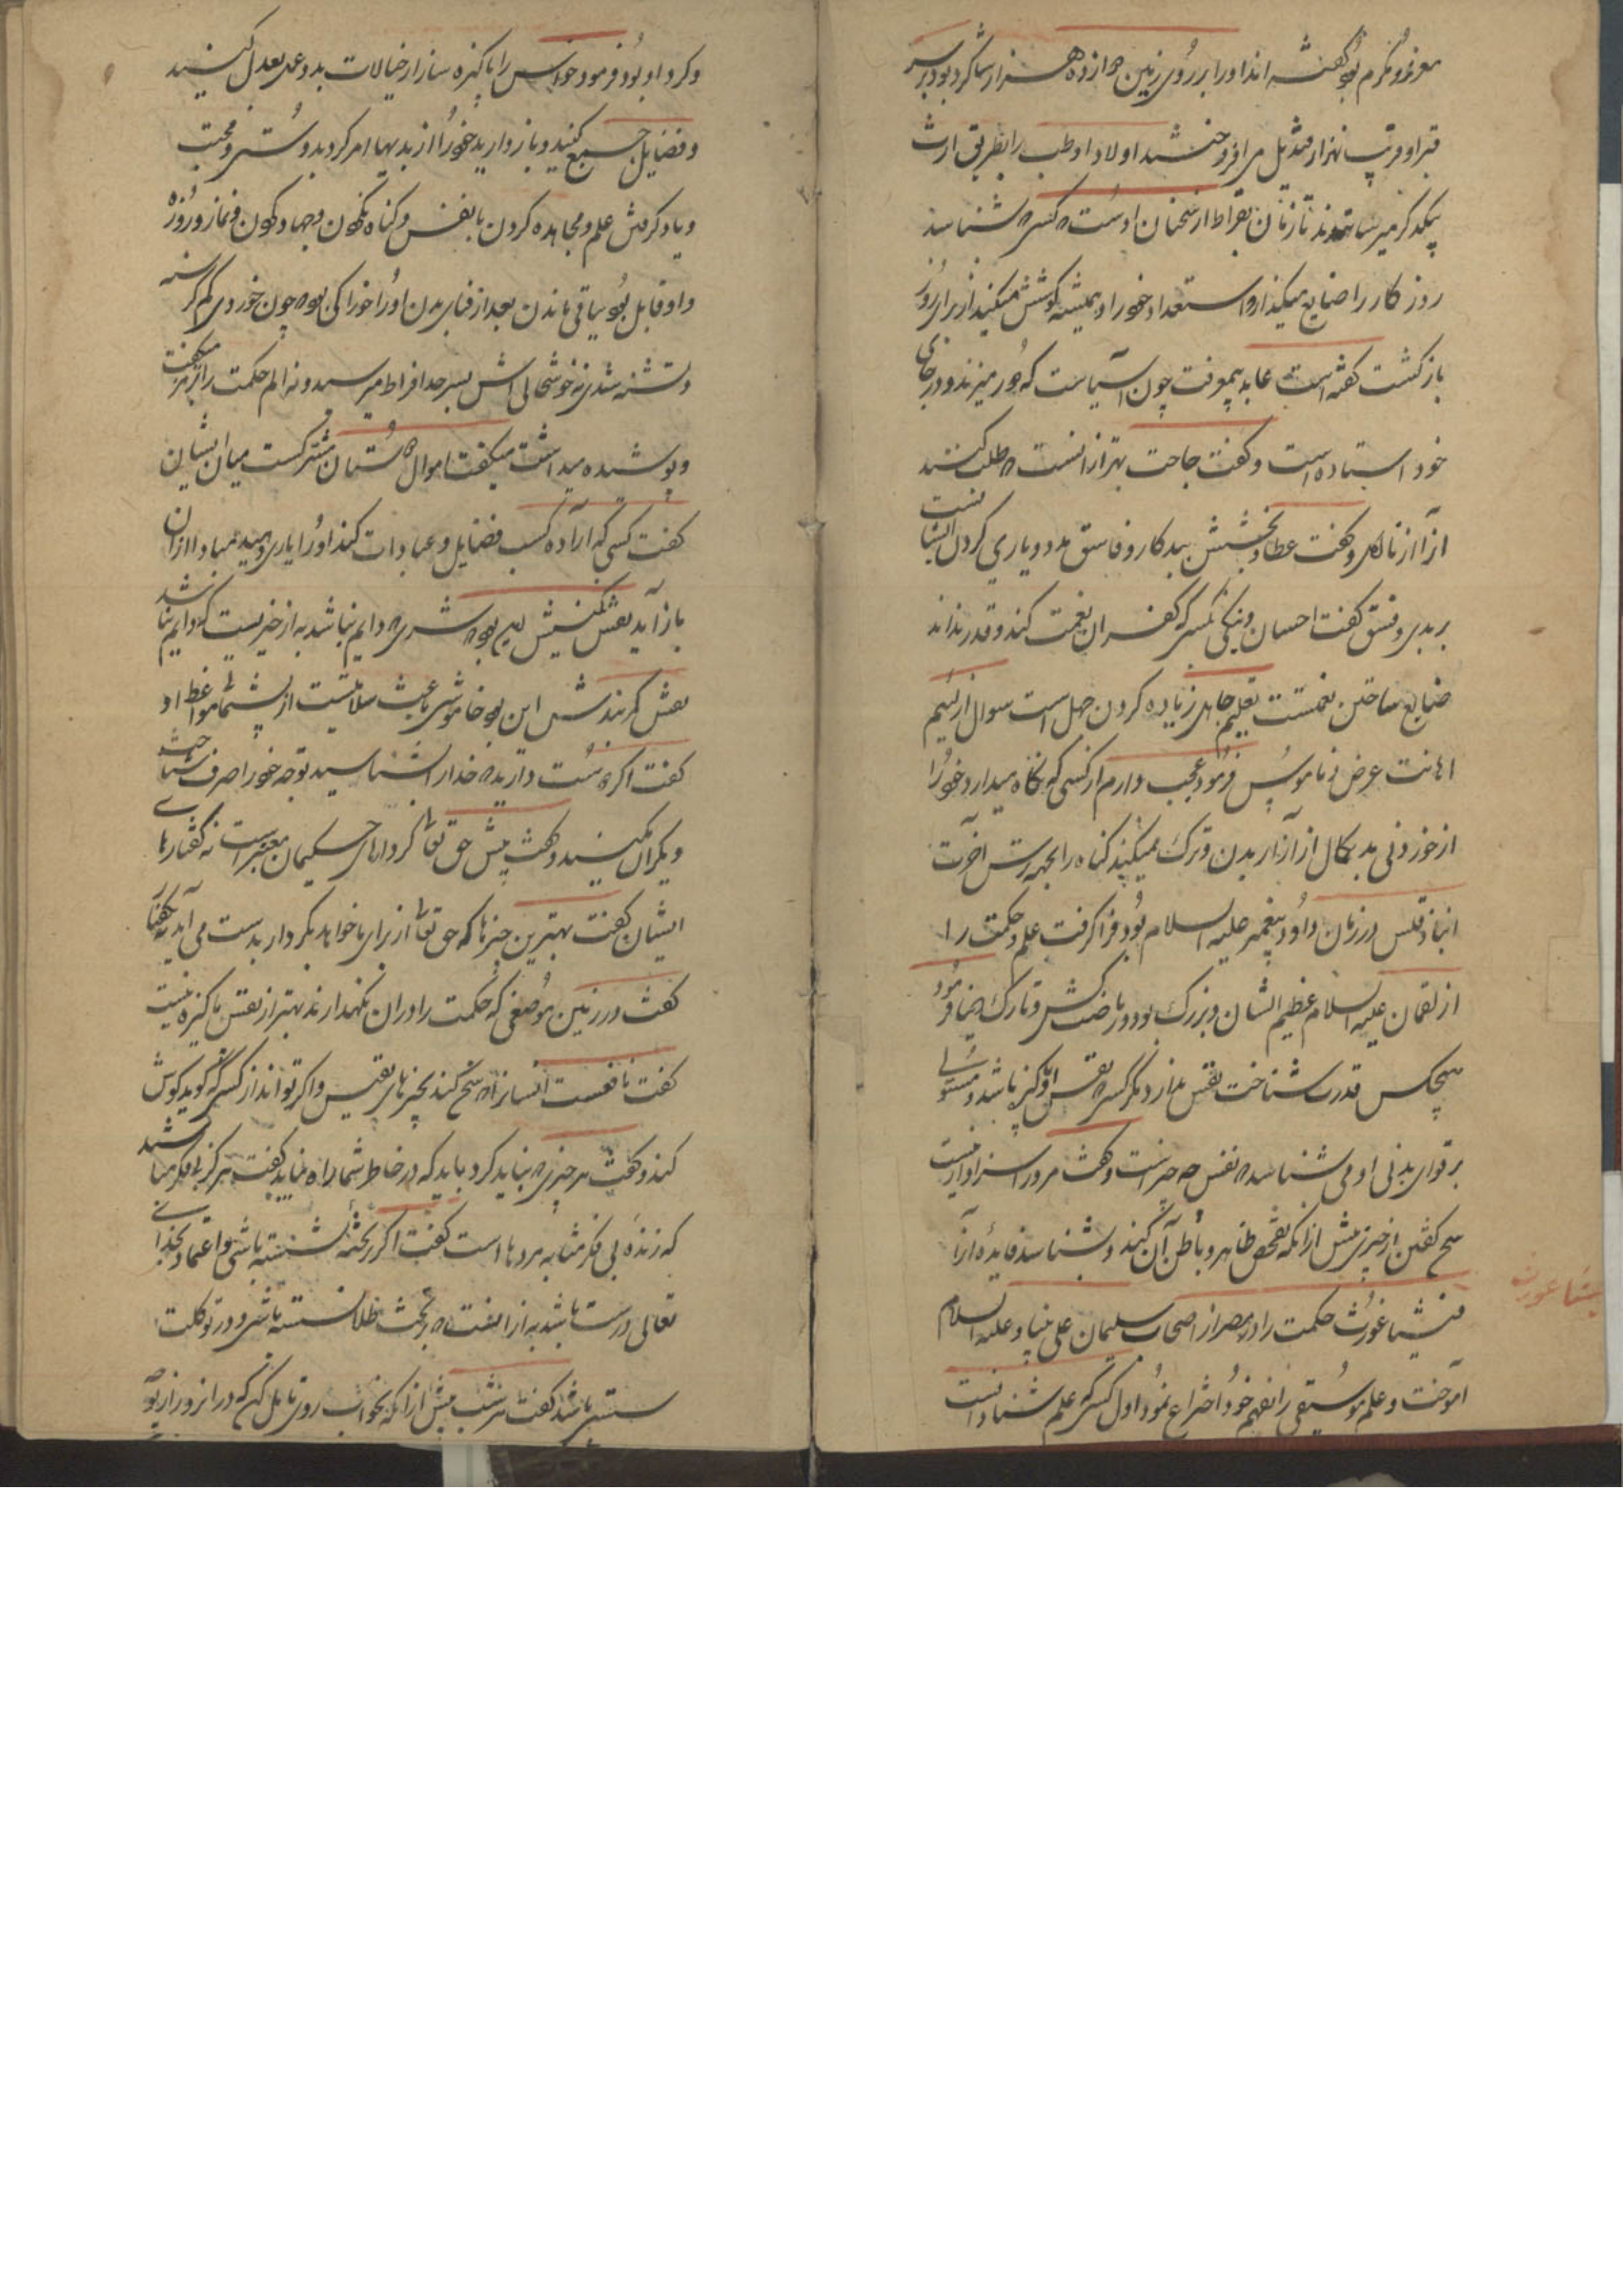 معزز و مکرم بود گفته اند او را بر روی زمین دوازده هزار شاگرد بود بر سر
قبر او قریب هزار قندیل می افروختند اولاد او طب را بطریق ارث
بیکدیگر میرسانیدند تا زمان بقراط از سخنان اوست که کسی که شناسد
روز کار را ضایع نمیگذارد استعداد خود را و همیشه کوشش میکند از برای روز
بازگشت گفته است عابد بی معرفت چون آسیاست که دور میزند و در جای
خود استاده است و گفت حاجت بهتر از انست که طلب کنند
از نااهل و گفت عطا و بخشش ببدکار و فاسق مدد و یاری کردن ایشانست
بر بدی و فسق گفت احسان و نیکی بکسی که کفران نعمت کند و قدر نداند
ضایع ساختن نعمتست تعلیم جاهل زیاده کردن جهل است سوال از لئیم
اهانت عرض و ناموس فرمود عجب دارم از کسی که نگاه میدارد خود را
از خوردنی بد از آزار بدن و ترک نمیکند گناه را بجهه ترس آخرت
انباذقلس در زمان داود پیغمبر علیه السلام بود فرا گرفت علم و حکمت را
از لقمان علیه السلام عظیم الشان و بزرگ بود و ریاضت کش و تارک دنیا فرمود
هیچکس قدرت شناخت نفس ندارد مگر کسی که نفس او پاکیزه باشد و مستولی
بر قوای بدنی او می شناسد که نفس چه چیز است و گفت مرد را سزاوار نیست
سخن گفتن از چیزی پیش از آنکه تفحص ظاهر و باطن آن کند و بشناسد فایده آنرا
فیثاغورث حکمت را در مصر از اصحاب سلیمان علی نبینا و علیه السلام
آموخت و علم موسیقی را بفهم خود اختراع نمود اول کسی که علم
فیثاغورث
و کرد او بود فرمود حواس را پاکیزه ساز از خیالات بد و عمل بعدل کنید
و فضایل جمع کنید و باز دارید خود را از بدیها امر کرد بدوستی و محبت
و یاد گرفتن علم و مجاهده کردن با نفس و گناه نکردن و جهاد کردن و نماز و روزه
و او قایل بود بباقی ماندن بعد از فنای بدن او را خوراکی بود که چون خوردی کم گرسنه
و تشنه شدی نه خوشحالی اش بسرحد افراط میرسید و نه الم حکمت را برمز میگفت
و پوشیده میداشت میگفت اموال دوستان مشترکست میان ایشان
گفت کسی که اراده کسب فضایل و عبادات کند او را یاری دهید مبادا از آن
باز آید نقش نگینش این بود که شری که دایم نباشد به از خیریست که دایم نباشد
نقش کمربندش این بود خاموشی باعث سلامتیست از پشیمانی مواعظ او
گفت اگر دوست دارید که خدا را شناسید توجه خود را صرف شناخت
دیگران مکنید و گفت پیش حق تعالی کردارهای حکیمان معتبر است نه گفتارهای
ایشان گفت بهترین چیزها که حق تعالی از برای ما خواهد بکردار بدست می آید نه بگفتار
گفت در زمین موضعی که حکمت را در آن نگهدارند بهتر از نفس پاکیزه نیست
گفت نافعست انسان را که سخن کند بچیزهای نفیس و اگر نتواند از کسی که گوید گوش
کند و گفت هر چیزی که نباید کرد باید که در خاطر شما راه نیابد گفت هرگز بی فکر مباشید
که زنده بی فکر مشابه مرده ها است گفت اگر بر تخته نشسته باشی و اعتماد بخدای
تعالی درست باشد به از انست که بر تخت طلا نشسته باشی و در توکلت
سستی باشد گفت هر شب پیش از آنکه بخواب روی تامل کن که در آن روز از تو